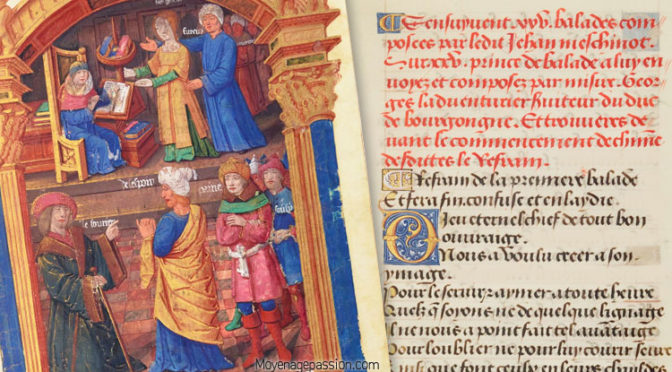 Ensuyuent. xxv. balades com
posees par ledit Jehan meschinot.
Sur xxv. prince de balade a luy en
voyez et composez par missire Geor
ges ladventurier serviteur du duc
de bourgongne. Et trouveres de
vant le commencement de
le Refrain.
Refrain de la premiere balade
Et sera fin confuse et enlaydie.
Dieu eternel chief de tout bon
ouuraige.
Nous a voulu creer a son
ymage.
Pour le seruir aymer a toute heure
soyons ne de quelque lignage
Il ne nous a point fait tel auantaige
Pour loublier ne pour luy courir seure
que tout
Moyenagepassion.com